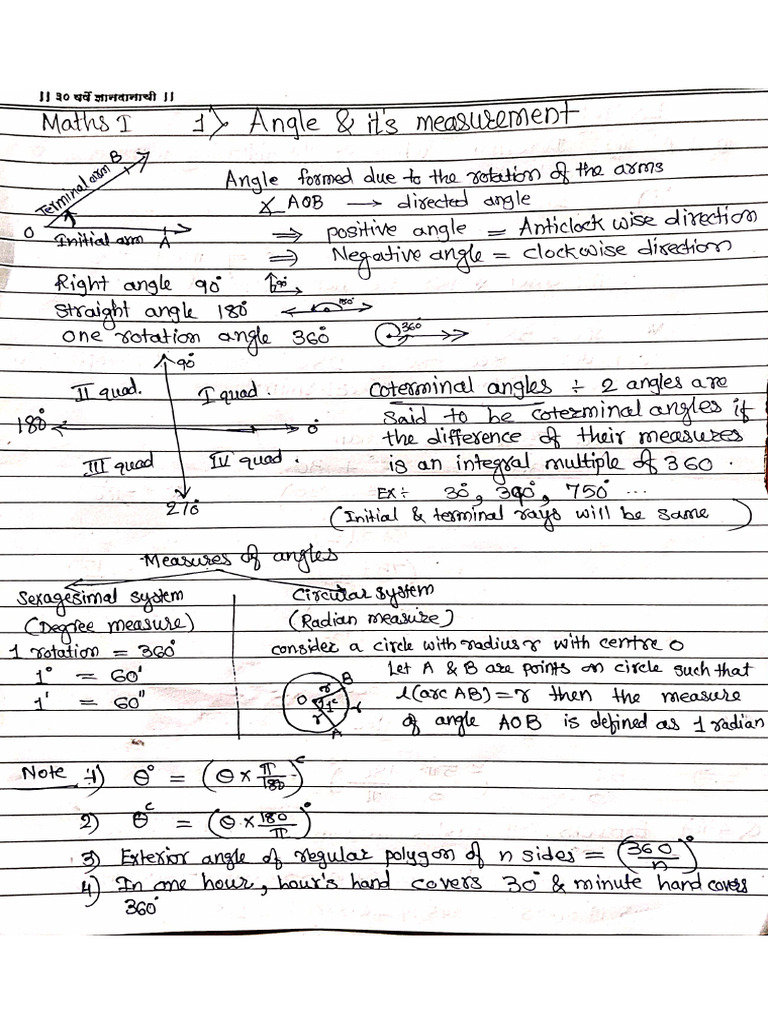 || ३० वर्षे ज्ञानदानाची ||
Maths I 1> Angle & it's measurement
Terminal arm B
O Initial arm A
Angle formed due to the rotation of the arms
∡ AOB → directed angle
⇒ positive angle = Anticlock wise direction
⇒ Negative angle = clockwise direction
Right angle 90° 90°
straight angle 180° 180°
one rotation angle 360° 360°
90°
II quad. I quad.
180° 0°
III quad IV quad.
270°
coterminal angles ÷ 2 angles are
said to be coterminal angles if
the difference of their measures
is an integral multiple of 360.
Ex÷ 30°, 390°, 750° ...
(Initial & terminal rays will be same)
Measures of angles
Sexagesimal system
(Degree measure)
1 rotation = 360°
1° = 60'
1' = 60"
Circular system
(Radian measure)
consider a circle with radius r with centre O
Let A & B are points on circle such that
l(arc AB) = r then the measure
of angle AOB is defined as 1 radian
O r B 1ᶜ r r A
Note :- 1) θ° = (θ × π/180)ᶜ
2) θᶜ = (θ × 180/π)°
3) Exterior angle of regular polygon of n sides = (360/n)°
4) In one hour, hour's hand covers 30° & minute hand covers
360°